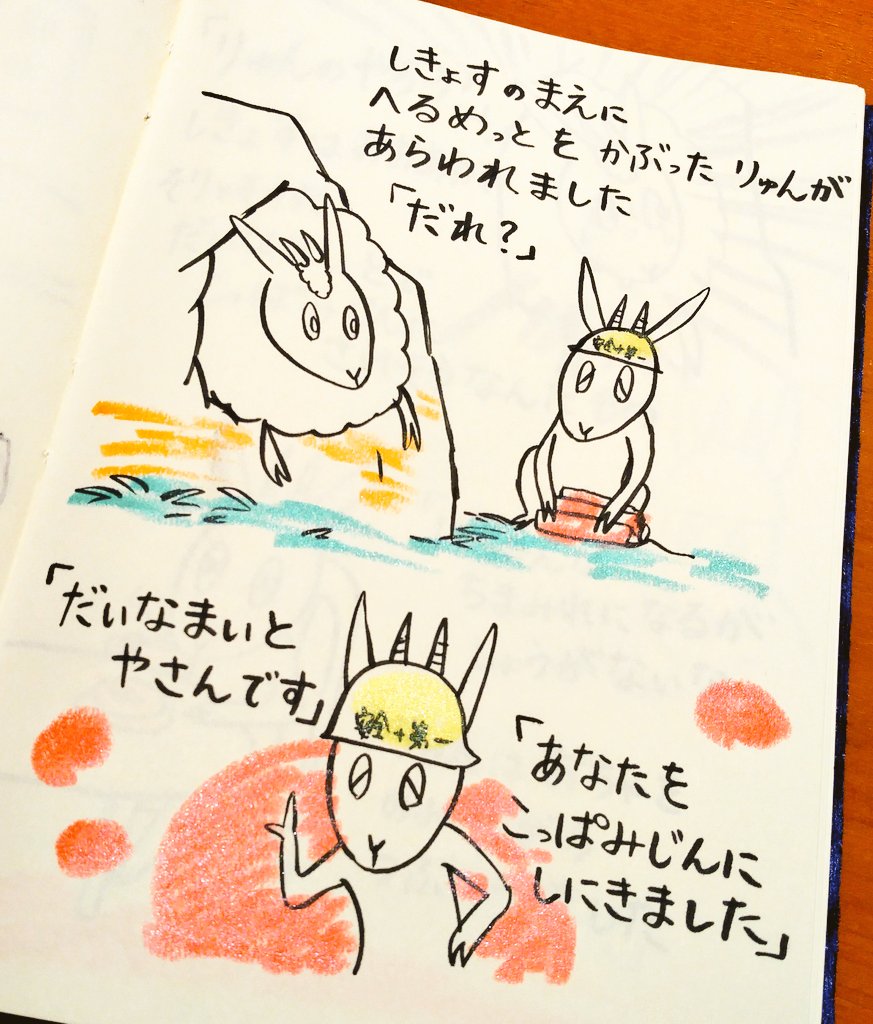 しきょすのまえに
へるめっとを かぶった りゅんが
あらわれました
「だれ？」
安全+第一
「だいなまいと
やさんです」
安全+第一
「あなたを
こっぱみじんに
しにきました」